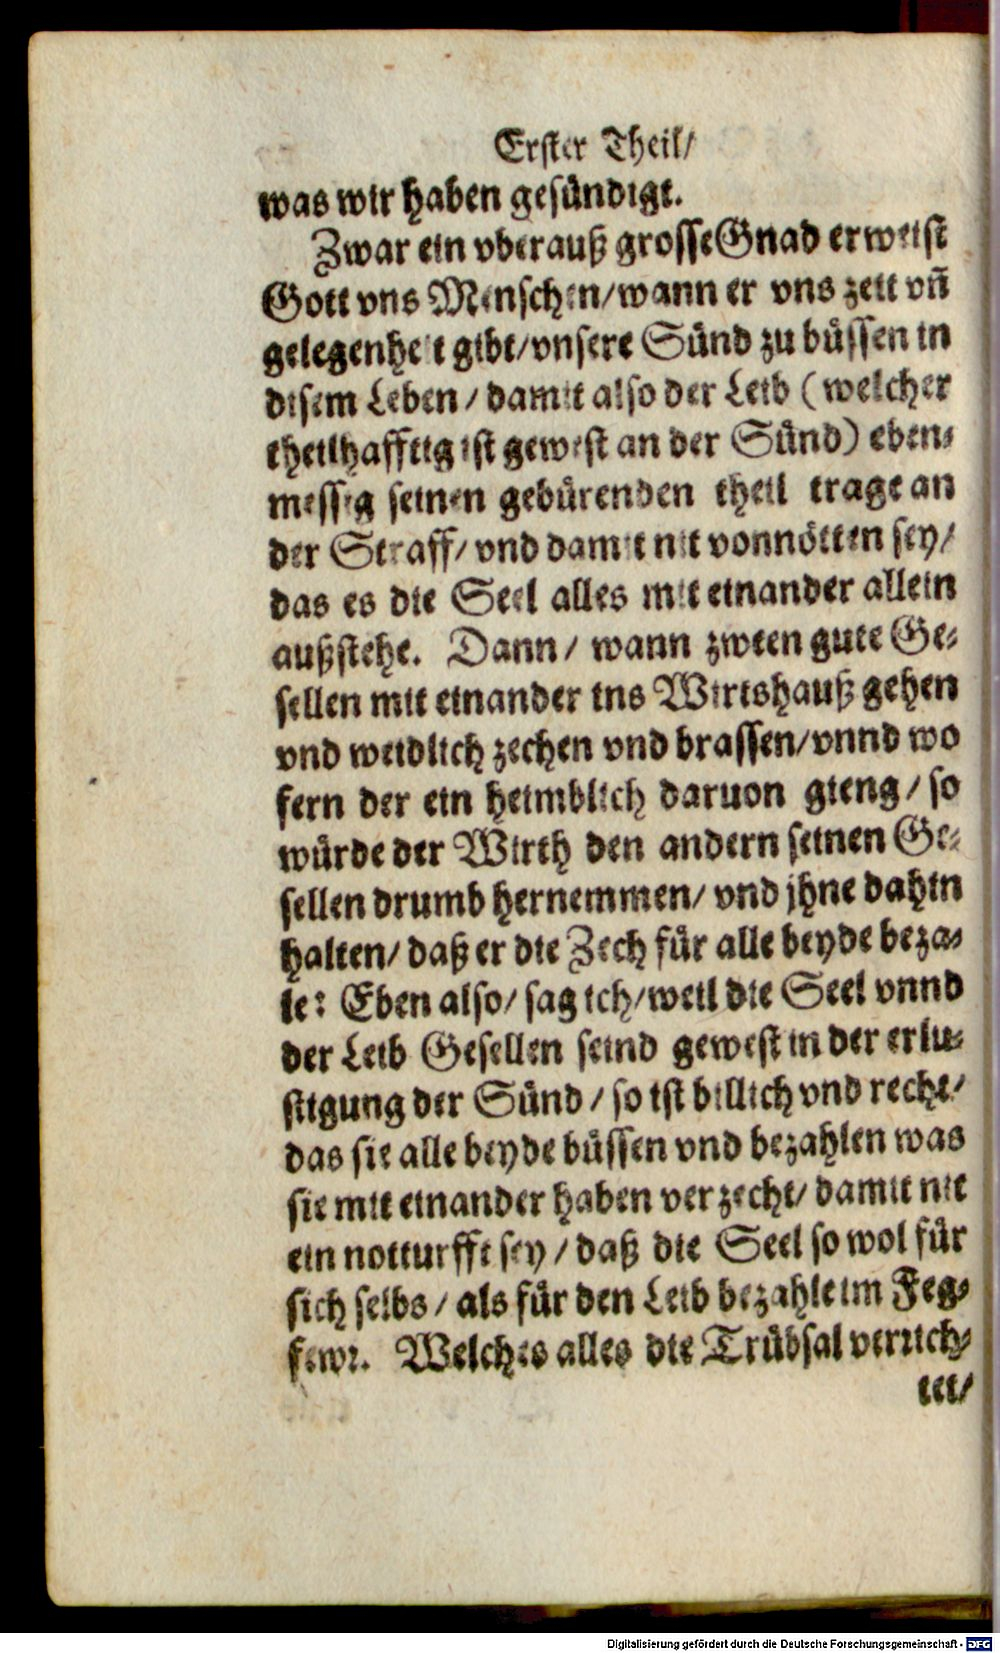 Erster Theil/
was wir haben gesündigt.
Zwar ein vberauß grosse Gnad erweist
Gott vns Menschen/wann er vns zeit vñ
gelegenheit gibt/vnsere Sünd zu büssen in
disem Leben/ damit also der Leib (welcher
theilhafftig ist gewest an der Sünd) eben-
messig seinen gebürenden theil trage an
der Straff/ vnd damit nit vonnötten sey/
das es die Seel alles mit einander allein
außstehe. Dann/ wann zween gute Ge-
sellen mit einander ins Wirtshauß gehen
vnd weidlich zechen vnd brassen/vnnd wo
fern der ein heimblich daruon gieng/ so
würde der Wirth den andern seinen Ge-
sellen drumb hernemmen/ vnd jhne dahin
halten/ daß er die Zech für alle beyde beza-
le: Eben also/ sag ich/weil die Seel vnnd
der Leib Gesellen seind gewest in der erlu-
stigung der Sünd/ so ist billich vnd recht/
das sie alle beyde büssen vnd bezahlen was
sie mit einander haben verzecht/ damit nit
ein notturfft sey/ daß die Seel so wol für
sich selbs/ als für den Leib bezahle im Feg-
fewr. Welches alles die Trübsal verrich-
tet/
Digitalisierung gefördert durch die Deutsche Forschungsgemeinschaft - DFG